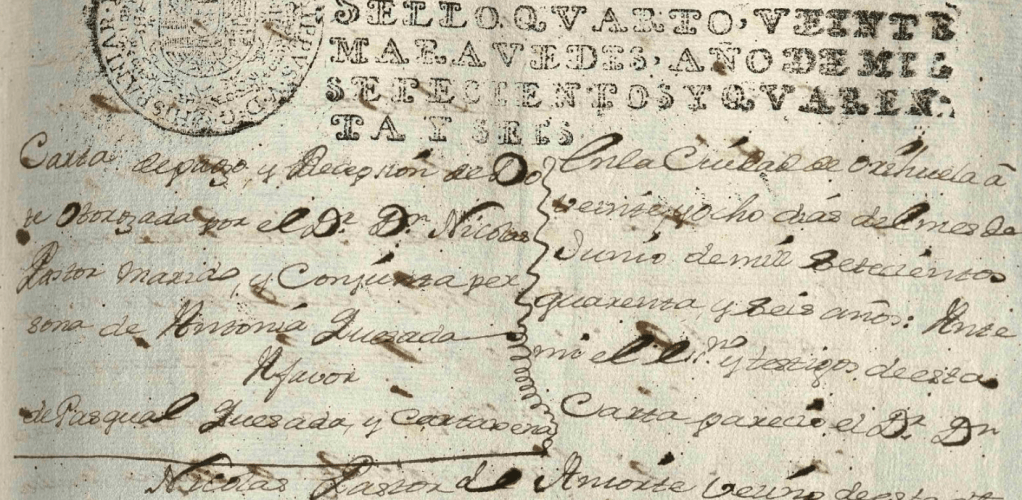 SELLO QVARTO, VEINTE
MARAVEDIS, AÑO DE MIL
SETECIENTOS Y QVAREN:
TA Y SEIS
Carta de pago y Recepsión de Do
te Otorgada por el Dr. Dn. Nicolas
Pastor Marido, y Conjunta per
sona de Antonia Quesada
A favor
de Pasqual Quesada, y Cartagena
En la Ciudad de Orihuela á
veinte y ocho dias del mes de
Junio de mil setecientos
quarenta, y seis años: Ante
mi el Essno. y testigos de esta
Carta parecio el Dr. Dn
Nicolas Pastor de Amorte vecino de esta